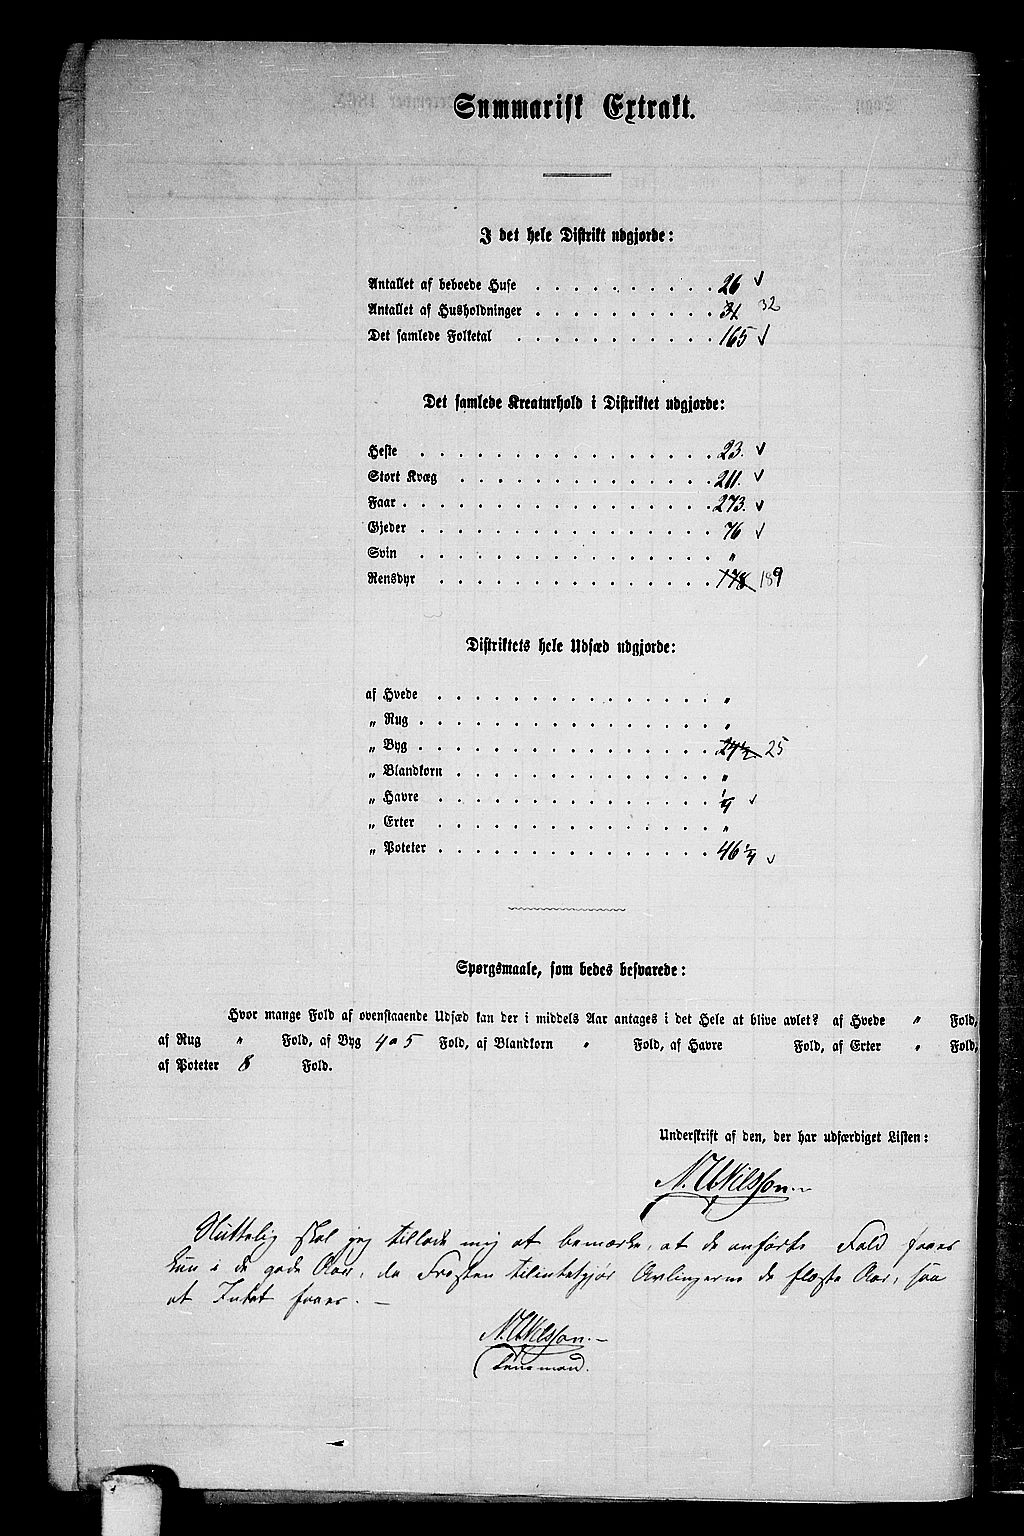 Summarisk Extrakt.
I det hele Distrikt udgjorde:
Antallet af beboede Huse . . . . . . . . . . 26 √
Antallet af Husholdninger . . . . . . . . . . 31 32
Det samlede Folketal . . . . . . . . . . . 165 √
Det samlede Kreaturhold i Distriktet udgjorde:
Heste . . . . . . . . . . . . . . . . 23. √
Stort Kvæg . . . . . . . . . . . . . . 211. √
Faar . . . . . . . . . . . . . . . . . 273. √
Gjeder . . . . . . . . . . . . . . . . 76 √
Svin . . . . . . . . . . . . . . . . "
Rensdyr . . . . . . . . . . . . . . . 178 189
Distriktets hele Udsæd udgjorde:
af Hvede . . . . . . . . . . . . . . . "
„ Rug . . . . . . . . . . . . . . . . "
„ Byg . . . . . . . . . . . . . . . . 24½ 25
„ Blandkorn . . . . . . . . . . . . . . "
„ Havre . . . . . . . . . . . . . . . ¼ √
„ Erter . . . . . . . . . . . . . . . "
„ Poteter . . . . . . . . . . . . . . . 46¼ √
Spørgsmaale, som bedes besvarede:
Hvor mange Fold af ovenstaaende Udsæd kan der i middels Aar antages i det Hele at blive avlet? af Hvede " Fold,
af Rug " Fold, af Byg 4 a 5 Fold, af Blandkorn " Fold, af Havre Fold, af Erter " Fold,
af Poteter 8 Fold.
Underskrift af den, der har udfærdiget Listen:
Sluttelig skal jeg tillade mig at bemærke, at de anførte Fold faaes
kun i de gode Aar, da Frosten tilintetgjør Avlingerne de fleste Aar, saa
at Intet faaes. –
Lensmand.